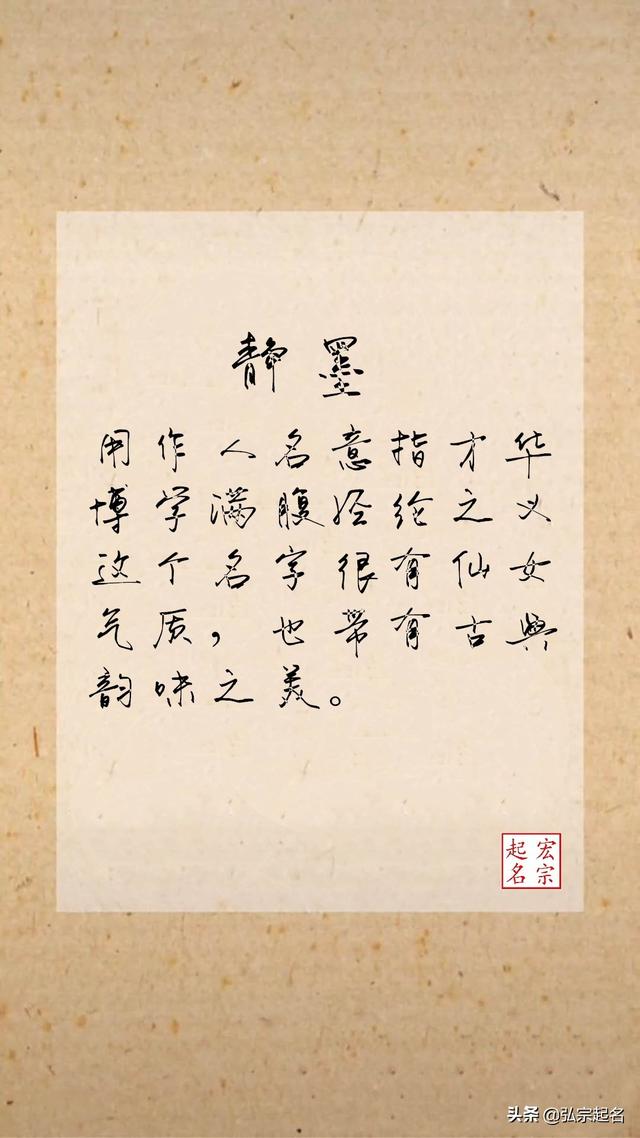 静墨
用作人名意指才华
博学满腹经纶之义
这个名字很有仙女
气质，也带有古典
韵味之美。
宏宗
起名
头条 @弘宗起名